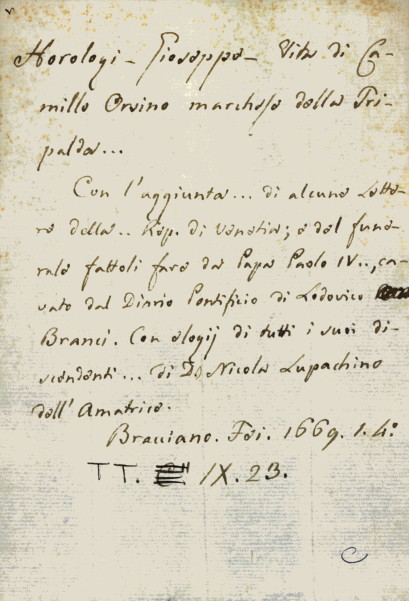 Horologi - Gioseppe - Vita di Ca-
millo Orsino marchese della Tri-
palda...
Con l'aggiunta... di alcune Lette-
re della.. Rep. di Venetia; e del fune-
rale fattoli fare da Papa Paolo IV.., ca-
vato dal Diario Pontificio di Lodovico
Branci. Con elogij di tutti i suoi di-
scendenti... di D. Nicola Lupachino
dell'Amatrice.
Bracciano. Fei. 1669. 1. 4º
TT. IX. 23.